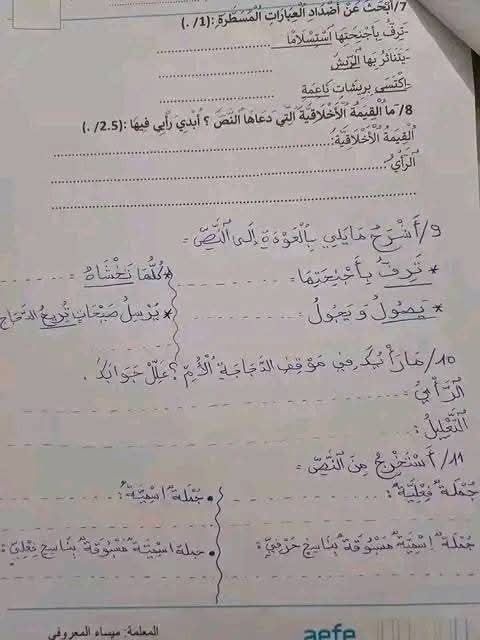 7/أَبْحَثُ عَنْ أَضْدَادِ الْعِبَارَاتِ الْمُسَطَّرَةِ:(1/ .)
-تَرِفُّ بِأَجْنِحَتِهَا اسْتِسْلَامًا ........................
-يَتَنَاثَرُ بِهَا الرِّيشُ ........................
-اِكْتَسَى بِرِيشَاتٍ نَاعِمَةٍ ........................
8/-مَا الْقِيمَةُ الْأَخْلَاقِيَّةُ الَّتِي دَعَاهَا النَّصُّ ؟ أُبْدِي رَأْيِي فِيهَا :(2.5/ .)
الْقِيمَةُ الْأَخْلَاقِيَّةُ:........................
الرَّأْيُ:........................
9/ أَشْرَحُ مَا يَلِي بِالْعَوْدَةِ إِلَى النَّصِّ =
* تَرِفُّ بِأَجْنِحَتِهَا = * كُلَّمَا تَخْشَاهُ :
* يَصُولُ وَ يَجُولُ : * يُرْسِلُ صَيْحَاتٍ تُرِيعُ الدَّجَاجَ
10/ مَا رَأْيُكَ فِي مَوْقِفِ الدَّجَاجَةِ الْأُمِّ ؟ عَلِّلْ جَوَابَكَ .
الرَّأْيُ :
التَّعْلِيلُ :
11/ أَسْتَخْرِجُ مِنَ النَّصِّ =
جُمْلَةً فِعْلِيَّةً : • جُمْلَةً اسْمِيَّةً :
جُمْلَةً اسْمِيَّةً مَسْبُوقَةً بِنَاسِخٍ حَرْفِيٍّ : • جملة اسْمِيَّةً مَسْبُوقَةً بِنَاسِخٍ فِعْلِيٍّ :
المعلمة: ميساء المعروفي
aefe